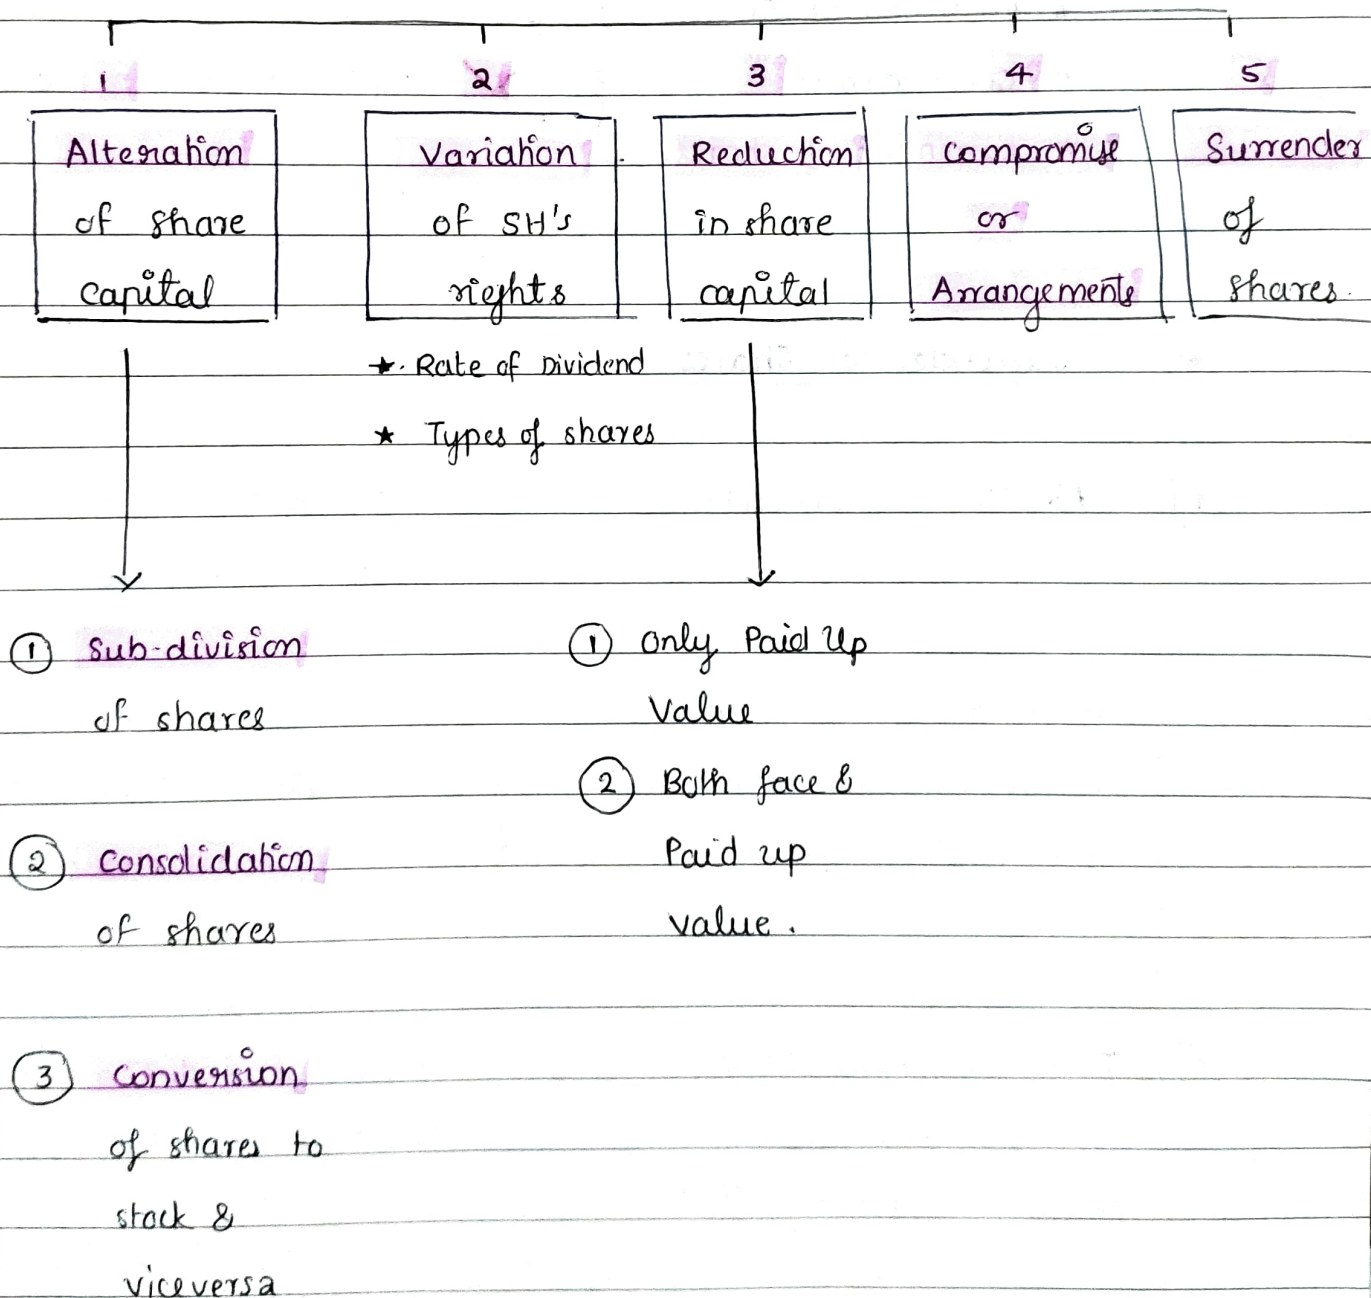 1 2 3 4 5
Alteration
of share
capital
Variation
of SH's
rights
Reduction
in share
capital
compromise
or
Arrangements
Surrender
of
shares.
★ Rate of Dividend
★ Types of shares
① Sub-division
of shares
② consolidation
of shares
③ conversion
of shares to
stock &
viceversa
① only Paid Up
Value
② Both face &
Paid up
value.